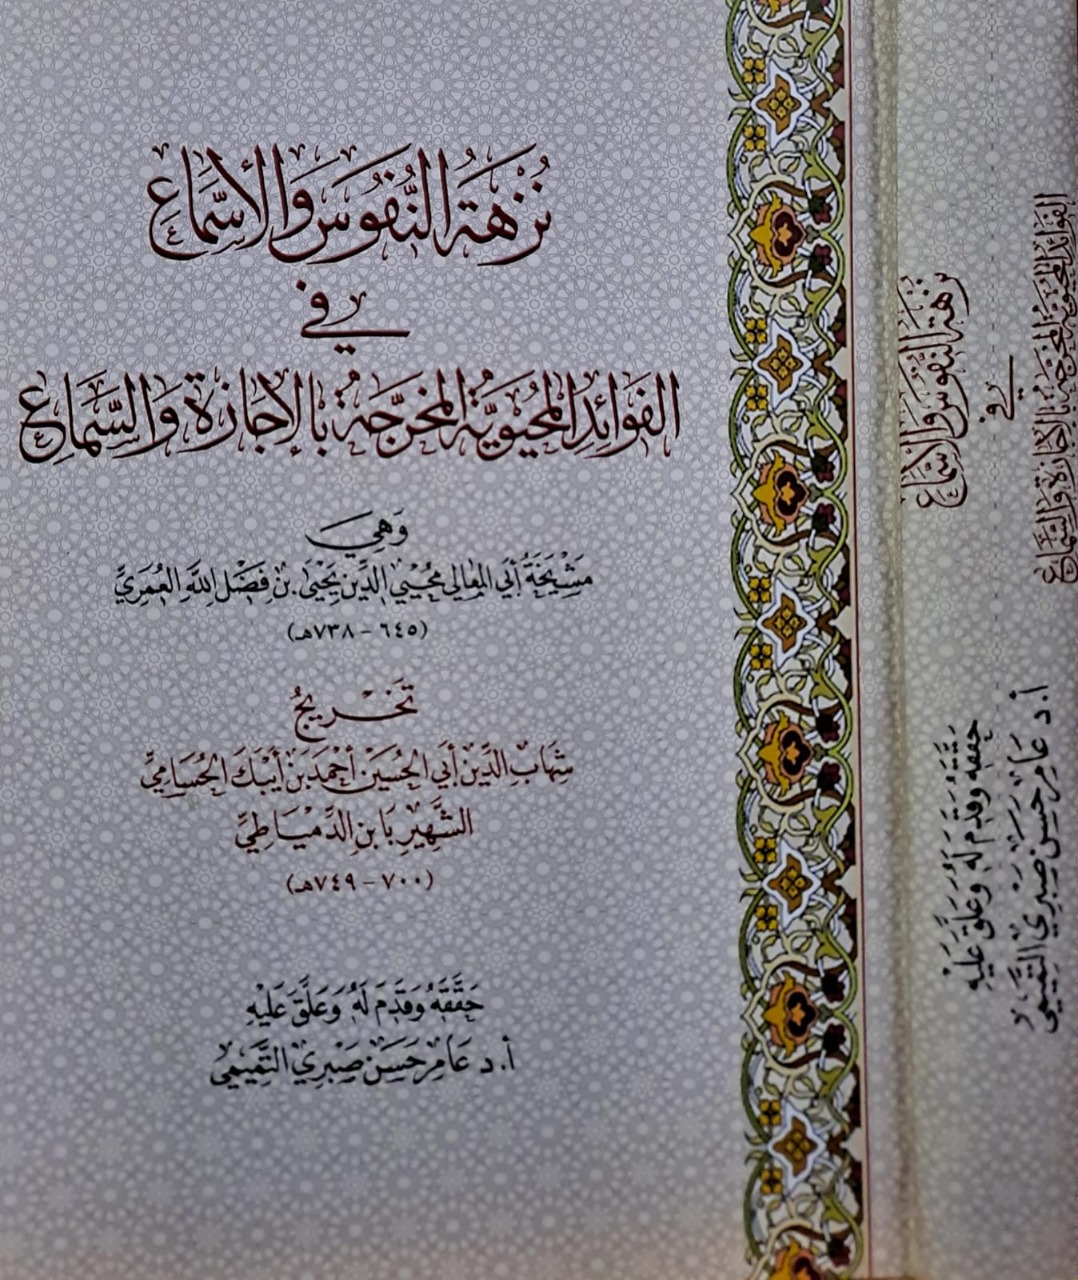 نُزْهَةُ النُّفُوسِ وَالأَسْمَاعِ
في
الفَوَائِدِ المُحْيَوِيَّةِ المُخَرَّجَةِ بِالإِجَازَةِ وَالسَّمَاعِ
وَهِيَ
مَشْيَخَةُ أَبِي المَعَالِي مُحْيِي الدِّين يَحْيَى بن فَضْلِ اللهِ العُمَرِيِّ
(٦٤٥ - ٧٣٨هـ)
تَخْرِيجُ
شِهَابِ الدِّين أَبِي الحُسَيْن أَحْمَدَ بن أَيْبَك الحُسَامِيِّ
الشَّهِيرِ بِابنِ الدِّمْيَاطِيِّ
(٧٠٠ - ٧٤٩هـ)
حَقَّقَهُ وَقَدَّمَ لَهُ وَعَلَّقَ عَلَيْهِ
أ. د عَامِر حَسَن صَبْرِي التَّمِيمِي
نزهة النفوس والأسماع
في
الفوائد المحيوية المخرجة بالإجازة والسماع
حَقَّقَهُ وَقَدَّمَ لَهُ وَعَلَّقَ عَلَيْهِ
أ. د عَامِر حَسَن صَبْرِي التَّمِيمِي